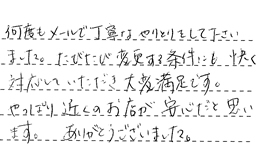 何度もメールで丁寧なやりとりをして下さい
ました。たびたび変更する条件にも快く
対応していただき大変満足です。
やっぱり近くのお店が安心だと思い
ます。ありがとうございました。